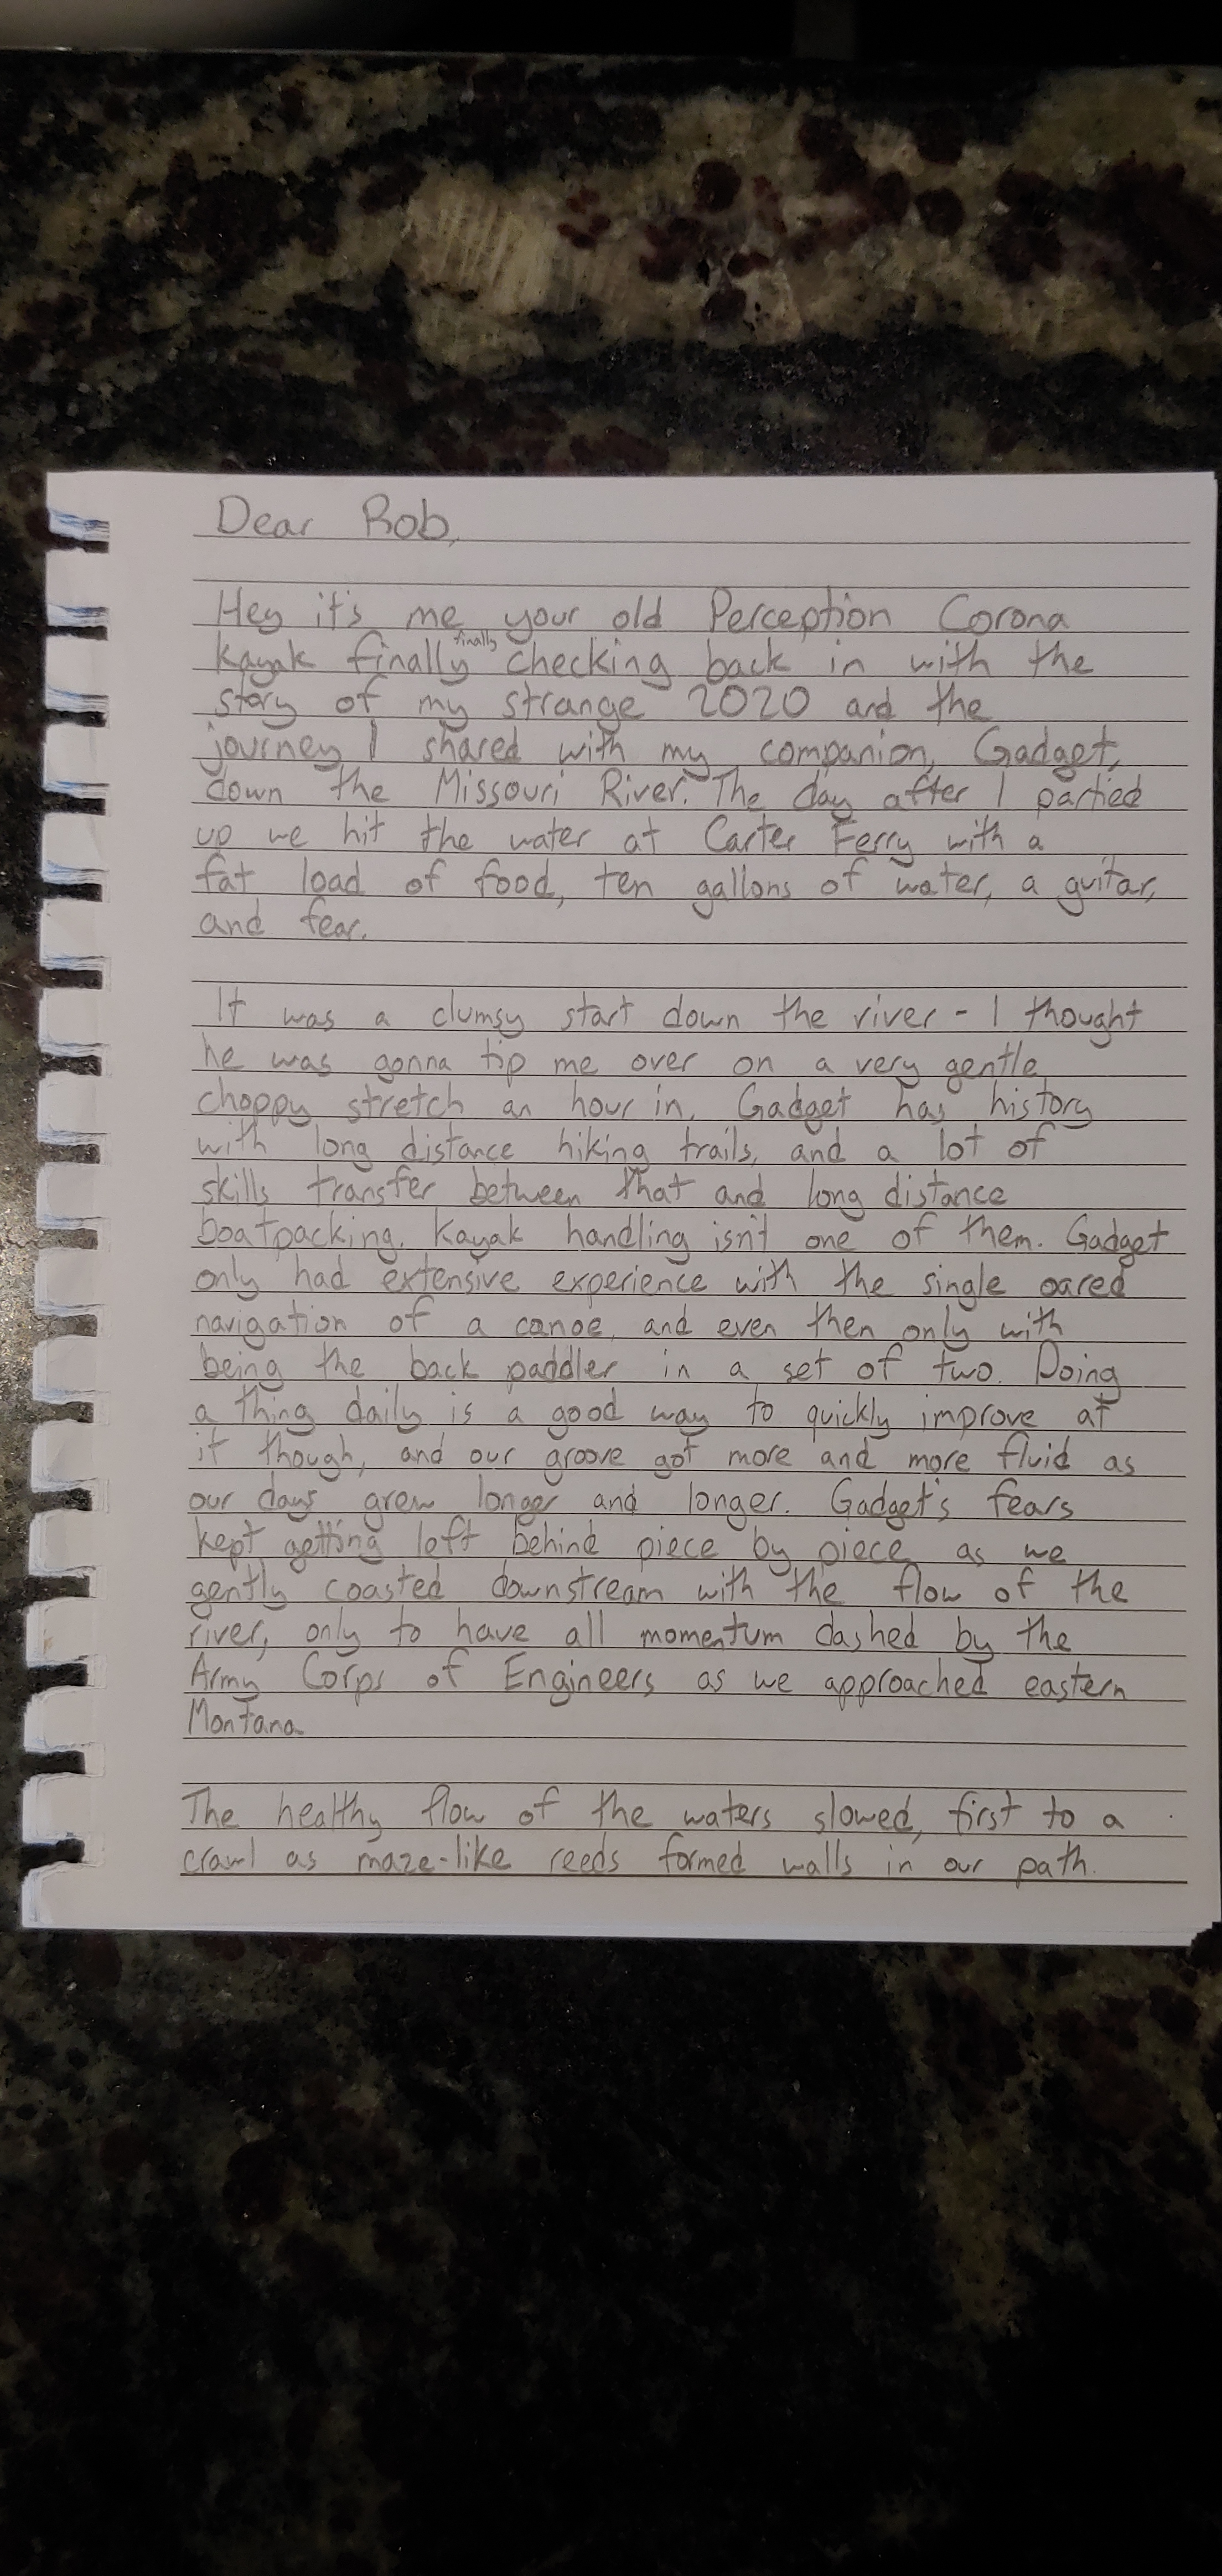 Dear Rob,
Hey it's me your old Perception Corona
kayak finally finally checking back in with the
story of my strange 2020 and the
journey I shared with my companion, Gadget,
down the Missouri River. The day after I partied
up we hit the water at Carter Ferry with a
fat load of food, ten gallons of water, a guitar,
and fear.
It was a clumsy start down the river - I thought
he was gonna tip me over on a very gentle
choppy stretch an hour in. Gadget has history
with long distance hiking trails, and a lot of
skills transfer between that and long distance
boatpacking. Kayak handling isn't one of them. Gadget
only had extensive experience with the single oared
navigation of a canoe, and even then only with
being the back paddler in a set of two. Doing
a thing daily is a good way to quickly improve at
it though, and our groove got more and more fluid as
our days grew longer and longer. Gadget's fears
kept getting left behind piece by piece as we
gently coasted downstream with the flow of the
river, only to have all momentum dashed by the
Army Corps of Engineers as we approached eastern
Montana.
The healthy flow of the waters slowed, first to a
crawl as maze-like reeds formed walls in our path.